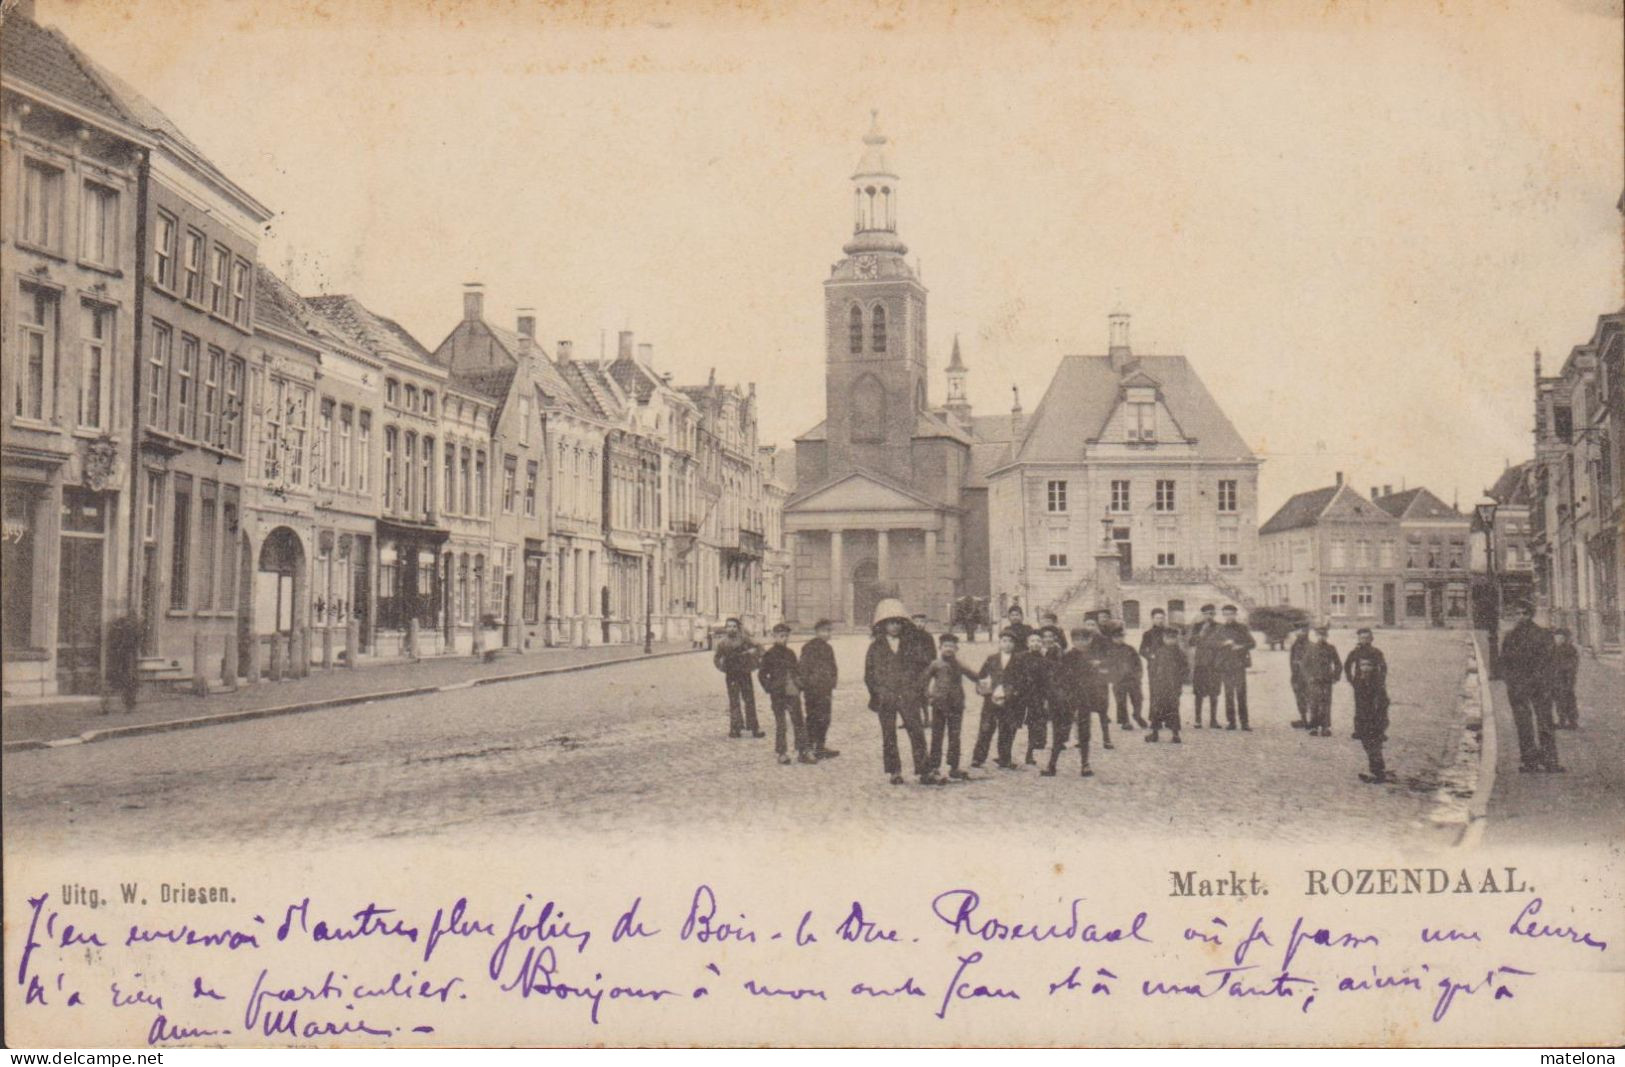 Markt. ROZENDAAL.
Uitg. W. Driesen.
J'en enverrai d'autres plus jolies de Bois-le Duc. Rosendaal où je passe une heure
n'a rien de particulier. Bonjour à mon oncle Jean et à ma Tante; ainsi qu'à
Anne-Marie. -
www.delcampe.net
matelona